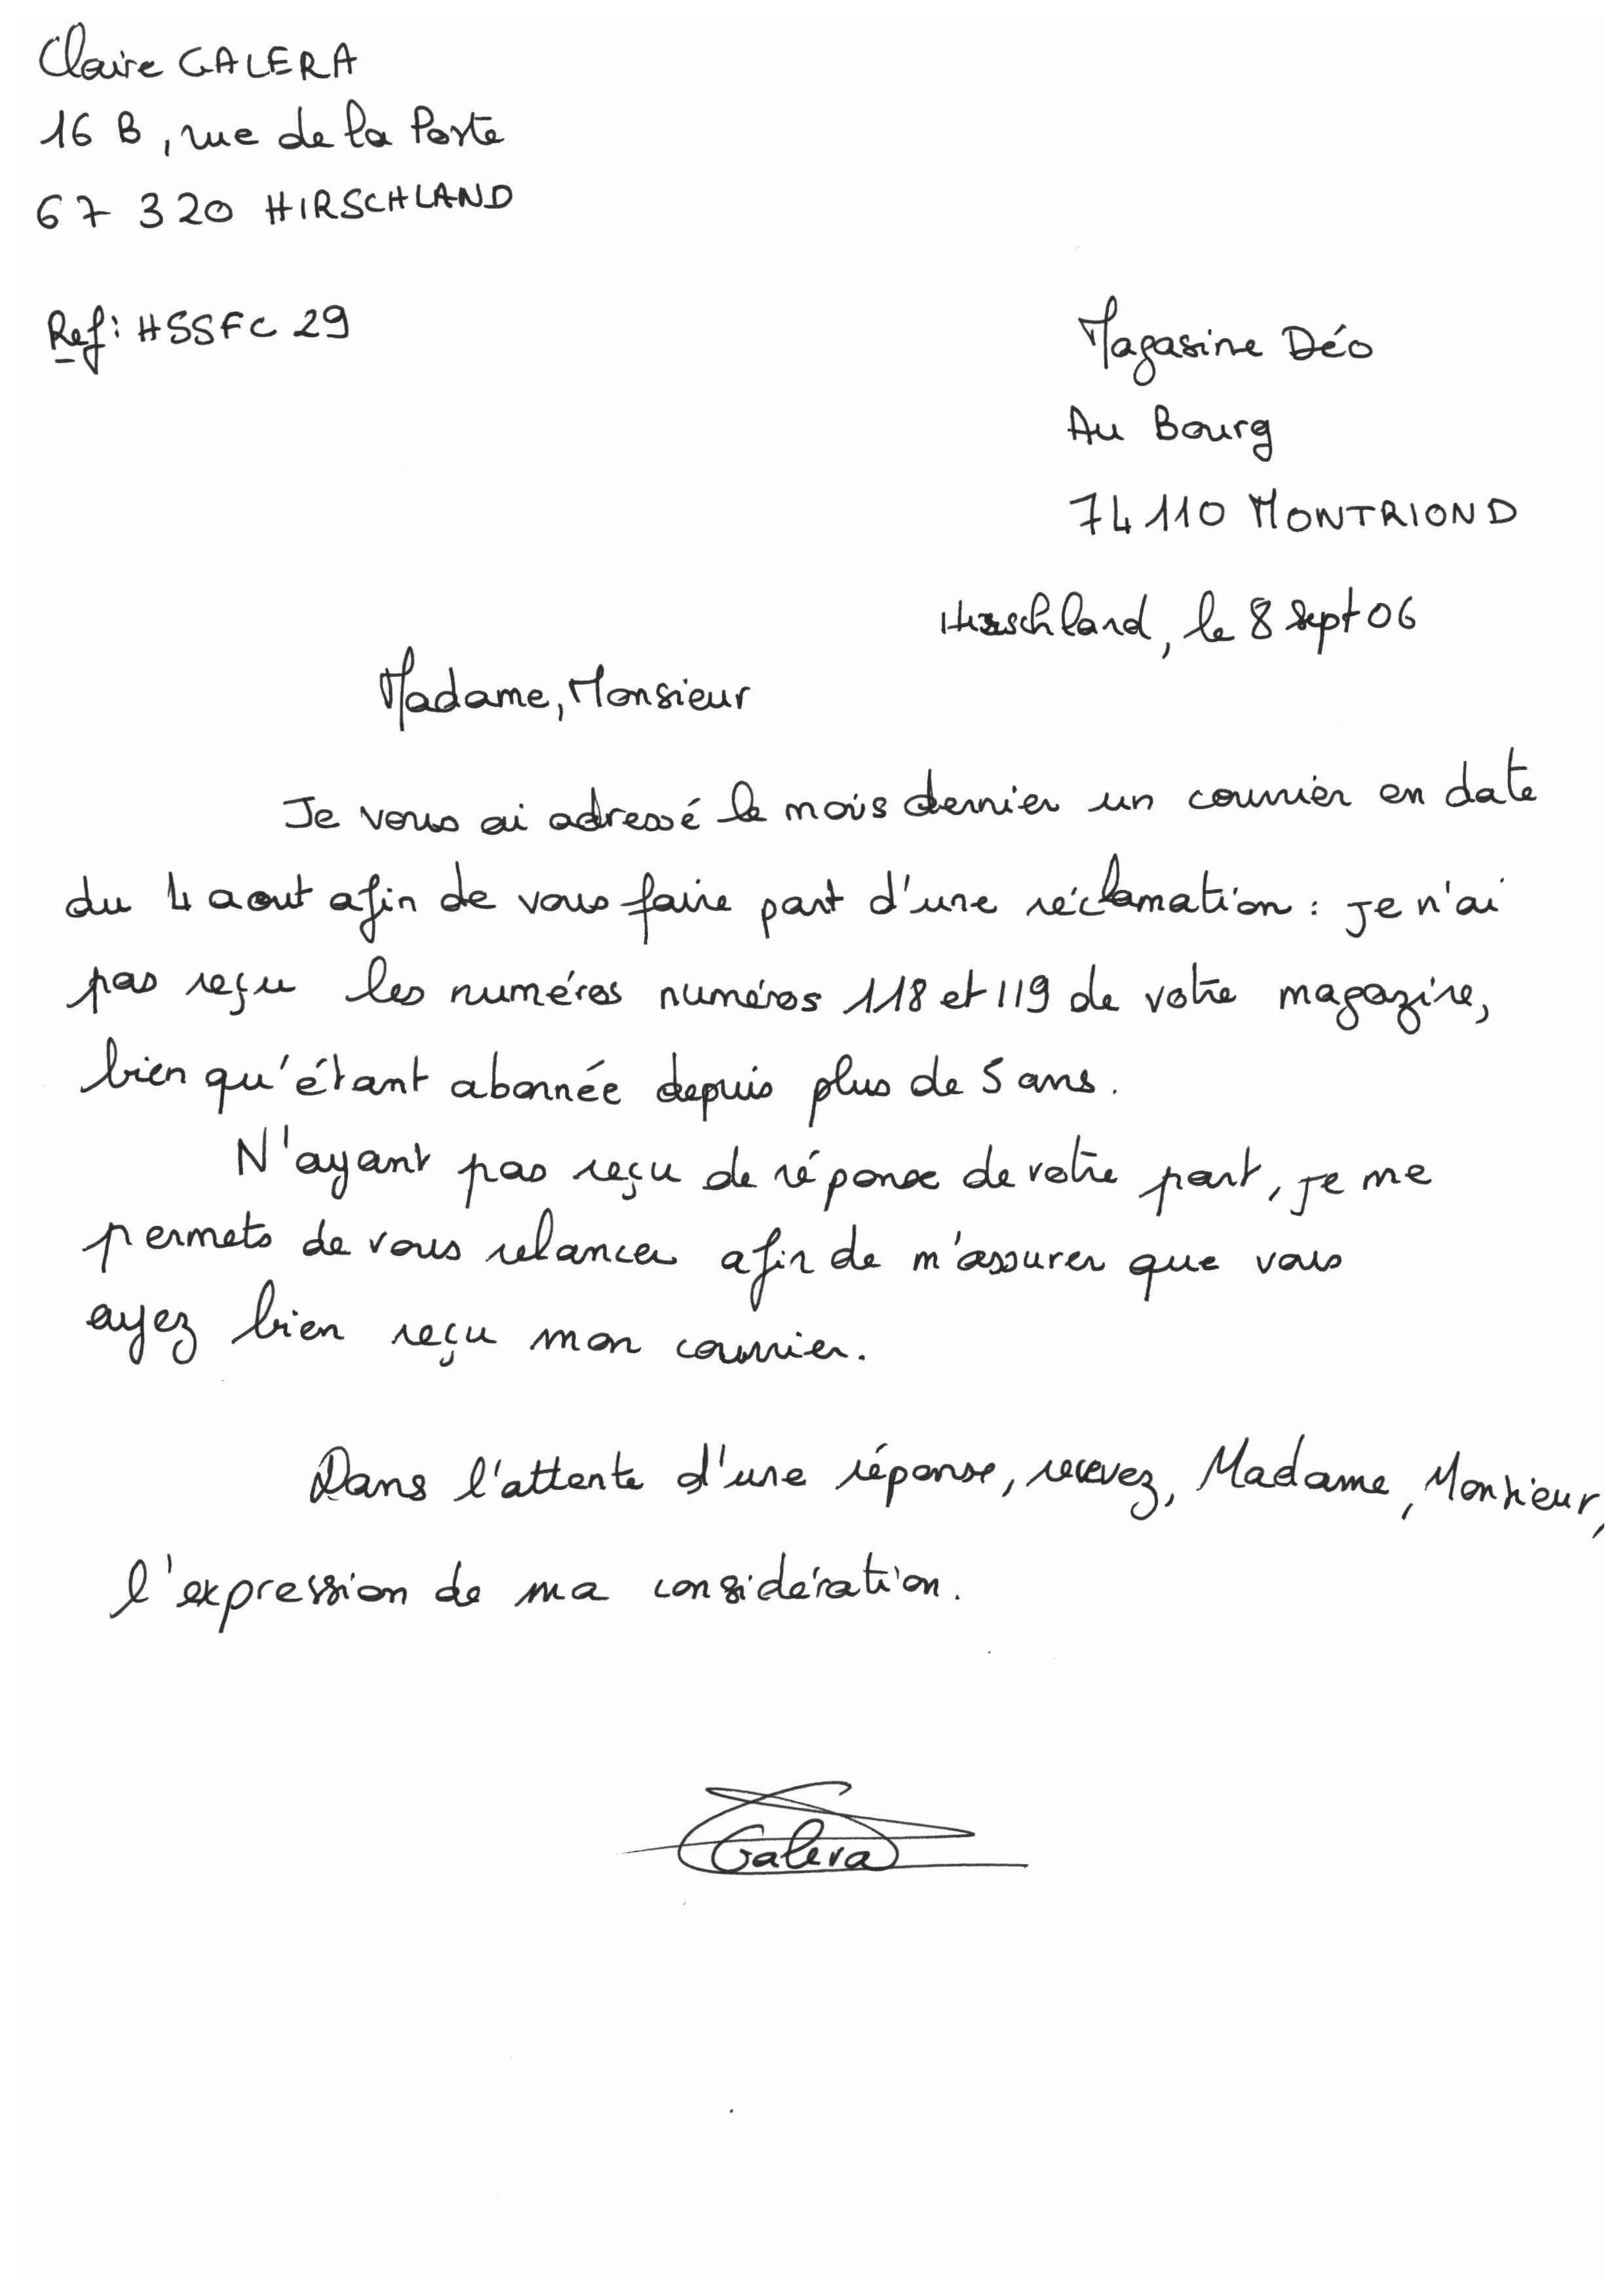 Claire GALERA
16 B, rue de la Porte
67 320 HIRSCHLAND
Ref: HSSFC 29
Magasine Déo
Au Bourg
74110 MONTRIOND
Hirschland, le 8 sept 06
Madame, Monsieur
Je vous ai adressé le mois dernier un courrier en date
du 4 aout afin de vous faire part d'une réclamation : je n'ai
pas reçu les numéros numéros 118 et 119 de votre magazine,
bien qu'étant abonnée depuis plus de 5 ans.
N'ayant pas reçu de réponse de votre part, je me
permets de vous relancer afin de m'assurer que vous
ayez bien reçu mon courrier.
Dans l'attente d'une réponse, recevez, Madame, Monsieur,
l'expression de ma considération.
Galera